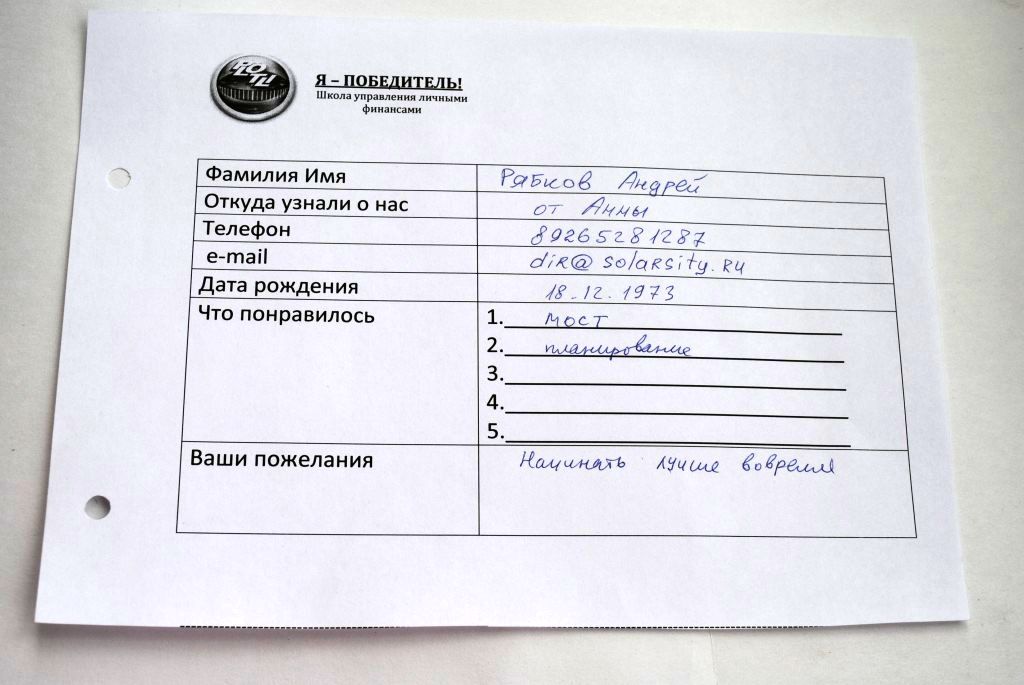 Я – ПОБЕДИТЕЛЬ!
Школа управления личными
финансами
Фамилия Имя Рябков Андрей
Откуда узнали о нас от Анны
Телефон 89265281287
e-mail dir@solarsity.ru
Дата рождения 18.12.1973
Что понравилось 1. мост
2. планирование
3.
4.
5.
Ваши пожелания Начинать лучше вовремя